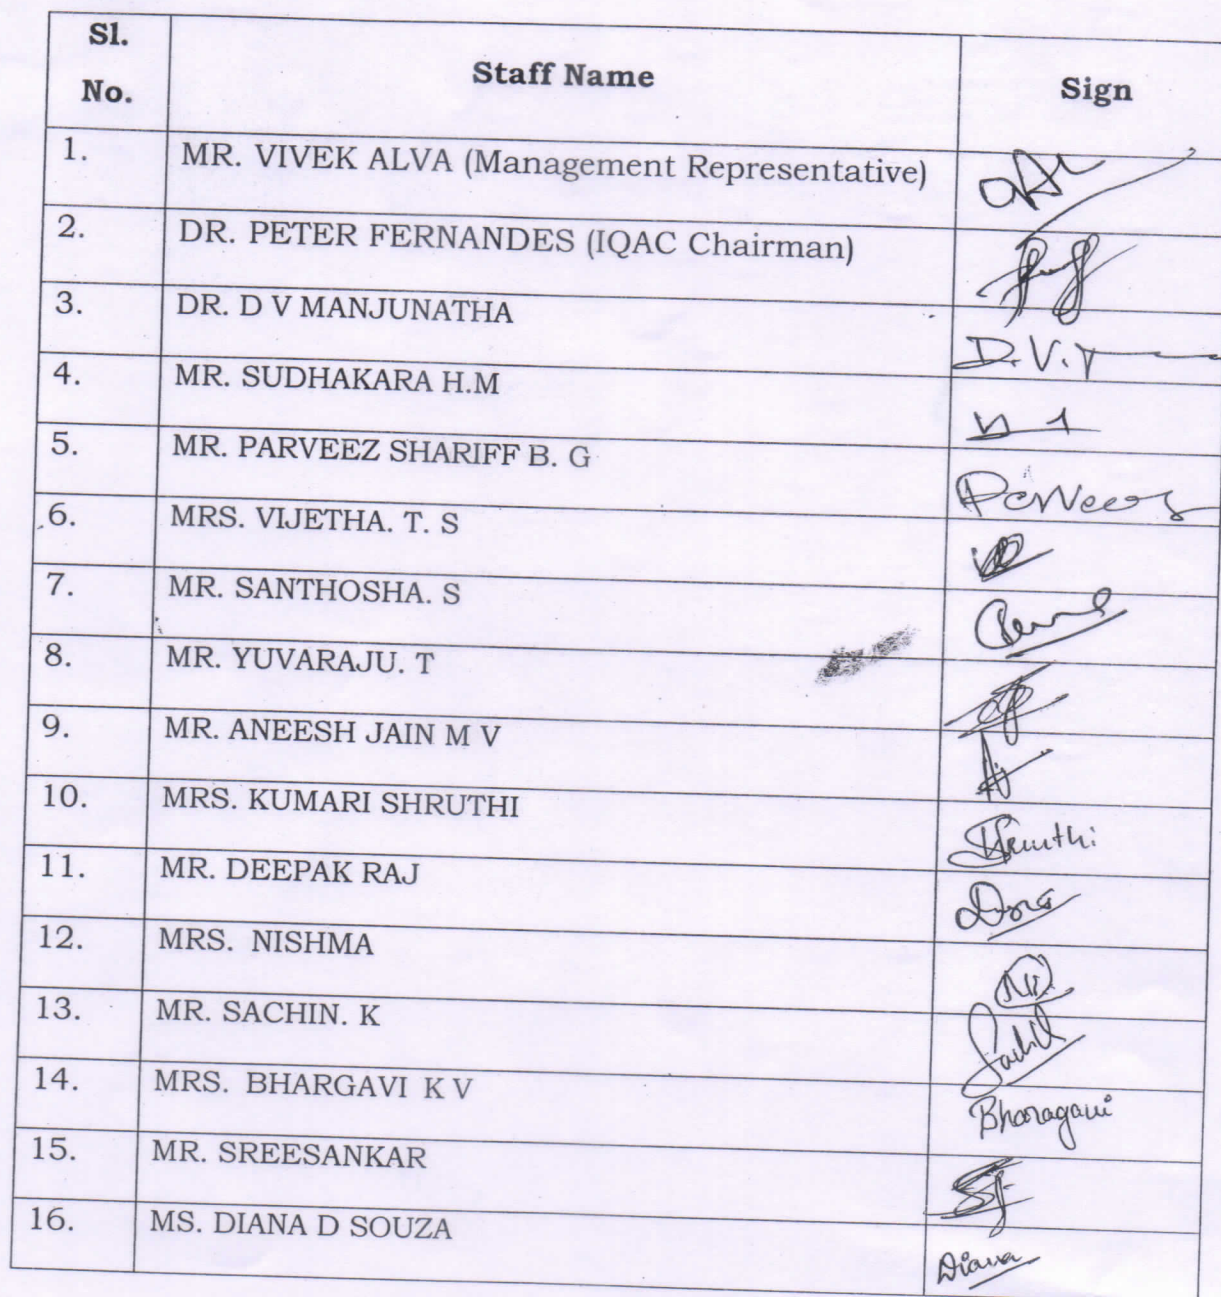 Sl. No. Staff Name Sign
1. MR. VIVEK ALVA (Management Representative)
2. DR. PETER FERNANDES (IQAC Chairman)
3. DR. D V MANJUNATHA D.V.
4. MR. SUDHAKARA H.M
5. MR. PARVEEZ SHARIFF B. G
6. MRS. VIJETHA. T. S
7. MR. SANTHOSHA. S
8. MR. YUVARAJU. T
9. MR. ANEESH JAIN M V
10. MRS. KUMARI SHRUTHI Shruthi
11. MR. DEEPAK RAJ
12. MRS. NISHMA
13. MR. SACHIN. K
14. MRS. BHARGAVI K V Bharagavi
15. MR. SREESANKAR
16. MS. DIANA D SOUZA Diana